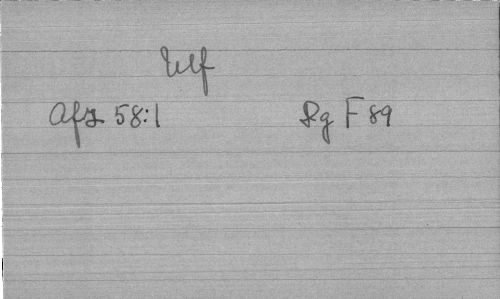 Ulf
Afz 58:1 Rg F 89